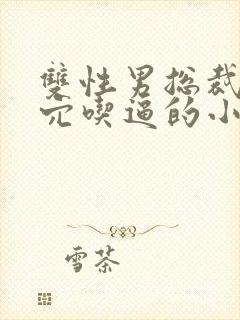 雙性男總裁
穴喫逼的小
雪茶